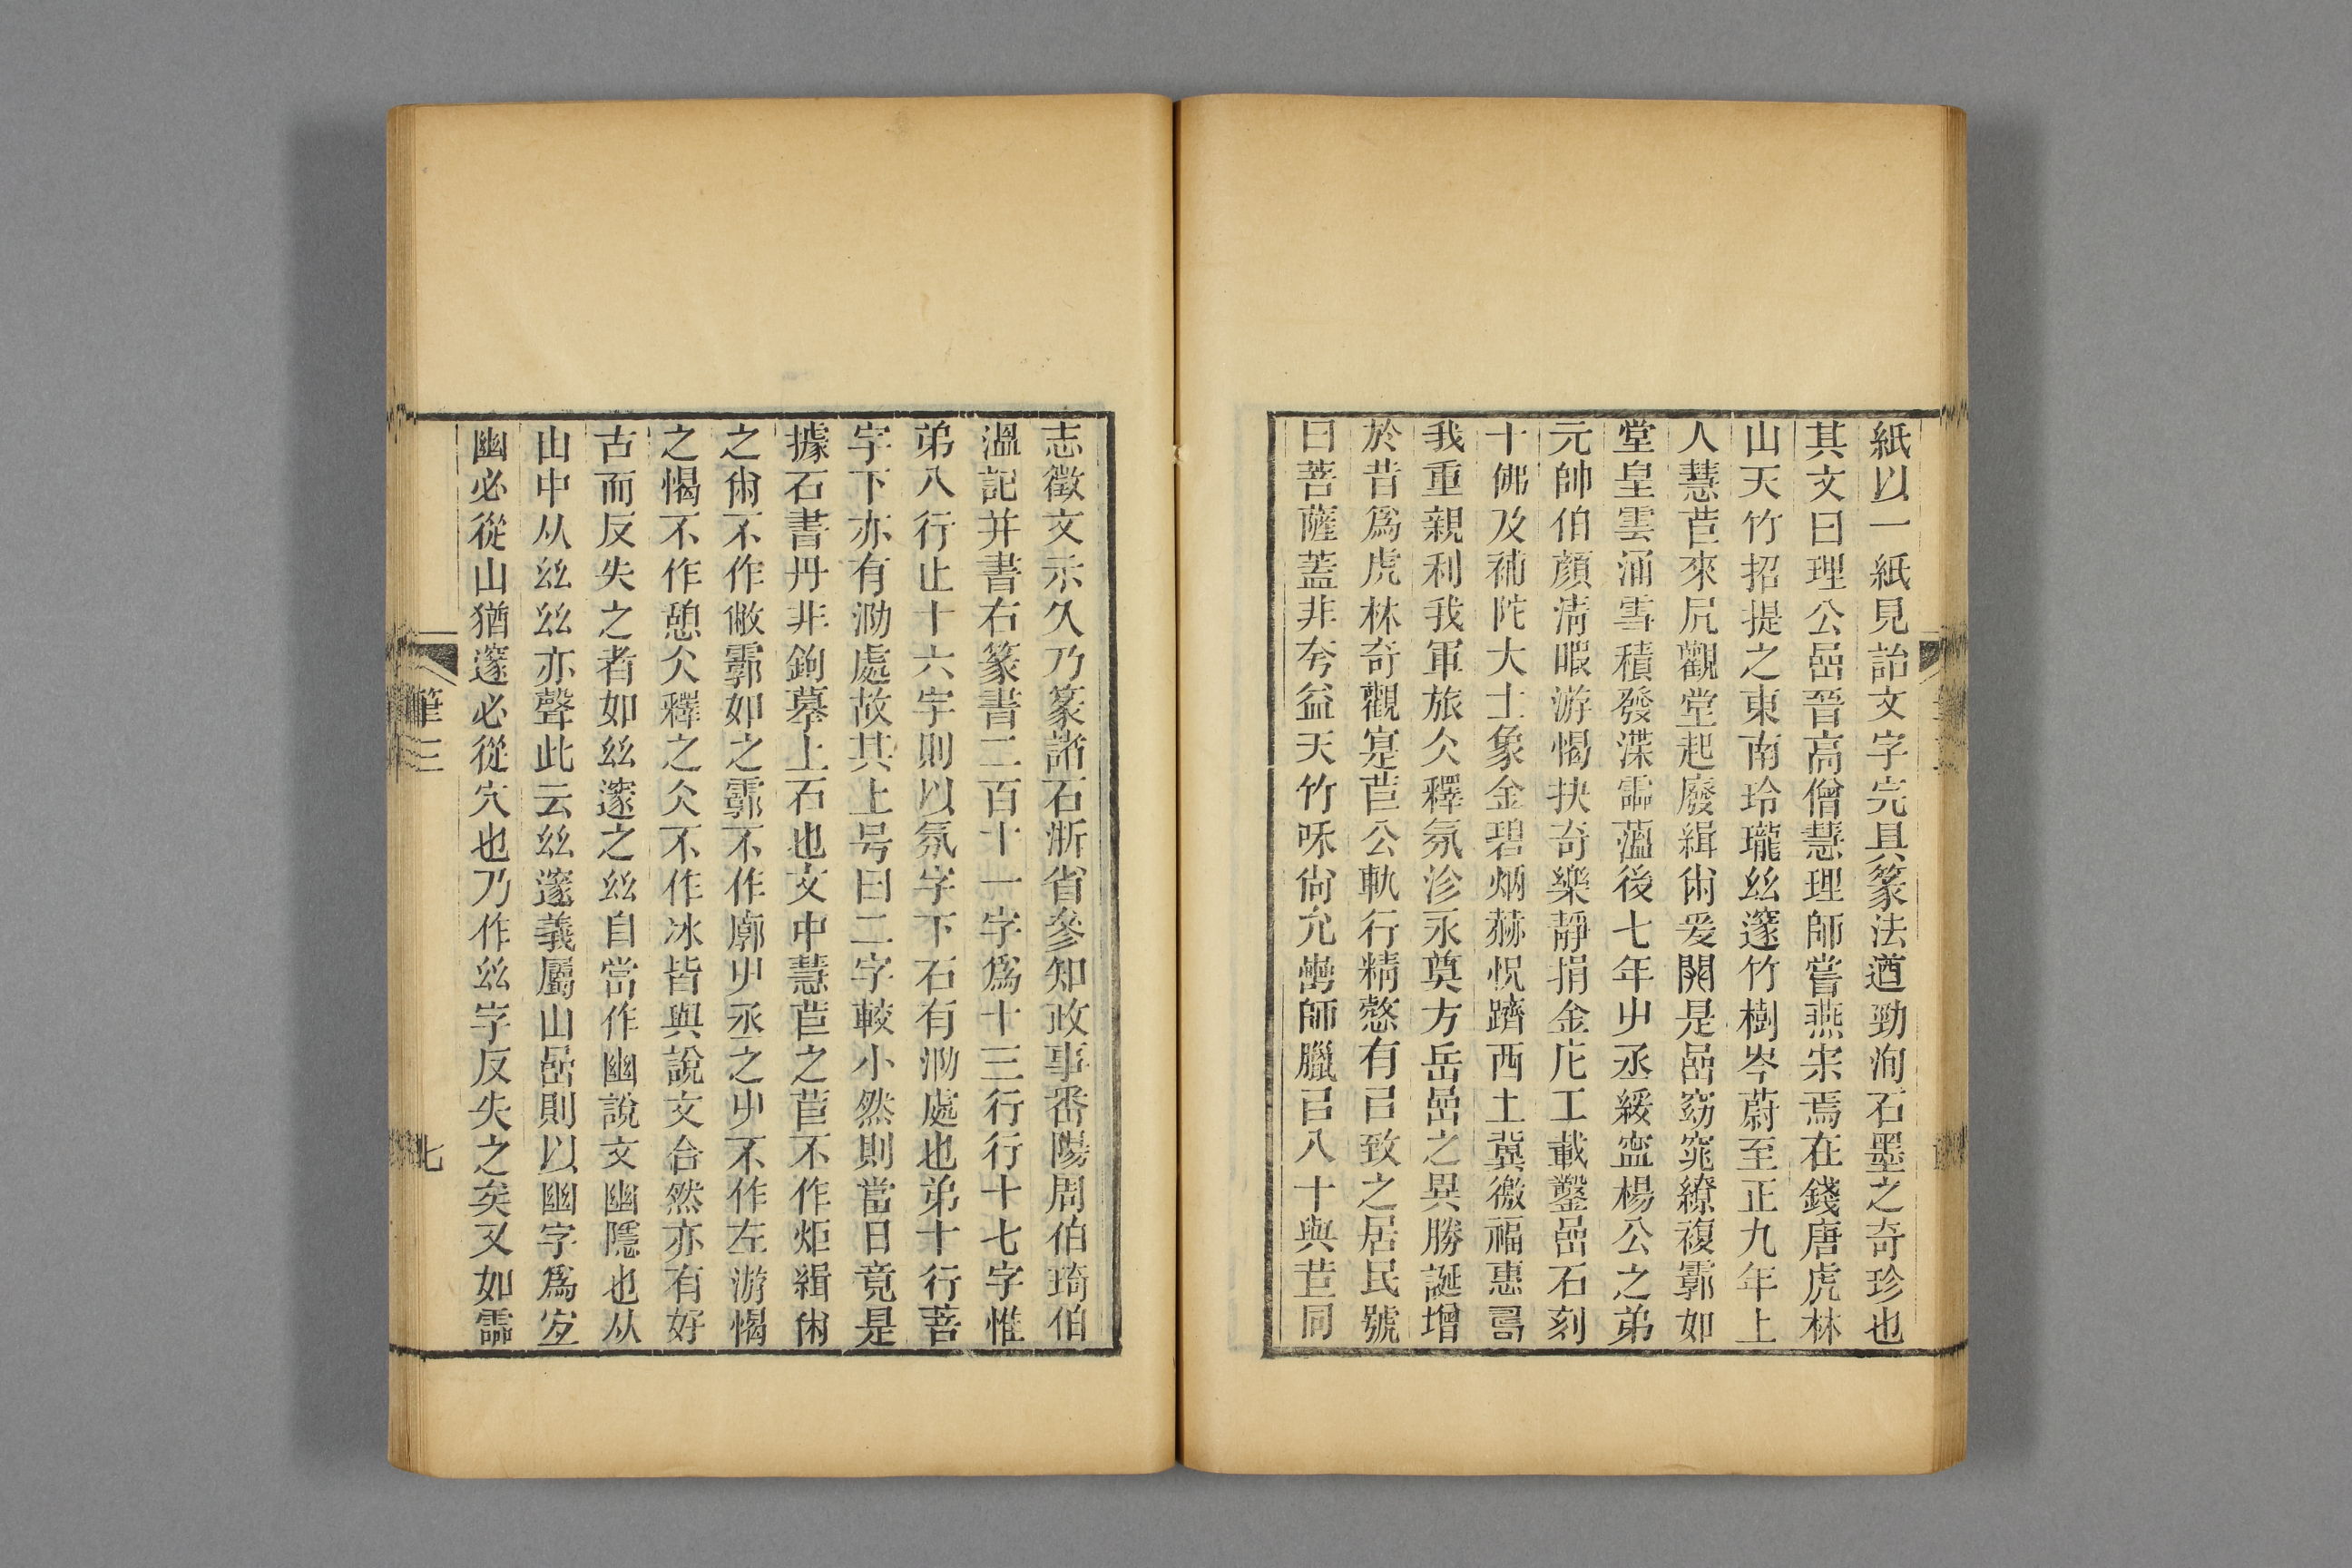 紙以一紙見詒文字完具篆法遒勁洵石墨之奇珍也
其文曰理公嵒晉高僧慧理師嘗燕宗焉在錢唐虎林
山天竹招提之東南玲瓏𢆶邃竹樹岑蔚至正九年上
人慧苣來凥觀堂起廢緝㡀爰開是嵒窈窕繚複霩如
堂皇雲涌雪積發渫霝薀後七年𠂇丞綏寍楊公之弟
元帥伯顏淸暇游愒抉奇樂靜捐金庀工載鑿嵒石刻
十佛及補陀大士象金碧炳赫怳躋西土冀徼福惠
我重親利我軍旅仌釋氛沴永奠方岳嵒之異勝誕增
於昔爲虎林奇觀寔苣公軌行精慤有㠯致之居民號
曰菩薩蓋非夸益天竹呩尙允師臘㠯八十與苣同
志徵文示久乃篆諸石浙省參知政事番陽周伯琦伯
溫記并書右篆書二百十一字爲十三行行十七字惟
弟八行止十六字則以氛字下石有泐處也弟十行菩
字下亦有泐處故其上号曰二字較小然則當日竟是
據石書丹非鉤摹上石也文中慧苣之苣不作炬緝㡀
之㡀不作敝霩如之霩不作廓𠂇丞之𠂇不作左游愒
之愒不作憩仌釋之仌不作冰皆與說文合然亦有好
古而反失之者如𢆶邃之𢆶自當作幽說文幽隱也从
山中从𢆶𢆶亦聲此云𢆶邃義屬山嵒則以幽字爲宜
幽必從山猶邃必從穴也乃作𢆶字反失之矣又如霝
筆三
七